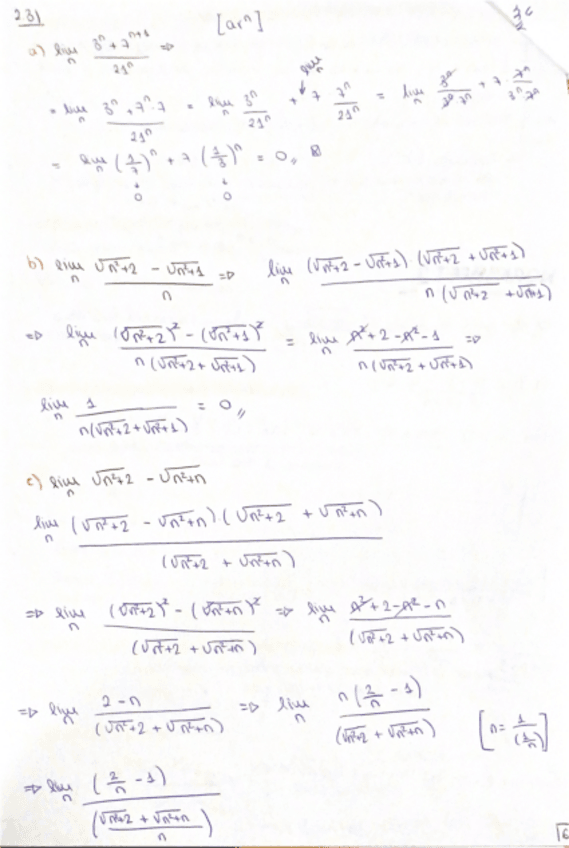 23)
[arⁿ]
a) lim_n (3ⁿ + 7ⁿ⁺¹)/21ⁿ ⇒
= lim_n (3ⁿ + 7ⁿ·7)/21ⁿ = lim_n 3ⁿ/21ⁿ + lim_n 7 7ⁿ/21ⁿ = lim_n 3ⁿ/(3ⁿ·7ⁿ) + 7·7ⁿ/(3ⁿ·7ⁿ)
= lim_n (1/7)ⁿ + 7 (1/3)ⁿ = 0,,
0 0
b) lim_n (√n²+2 - √n²+1)/n ⇒ lim_n ((√n²+2 - √n²+1)·(√n²+2 + √n²+1))/(n(√n²+2 + √n²+1))
⇒ lim_n ((√n²+2)² - (√n²+1)²)/(n(√n²+2 + √n²+1)) = lim_n (n²+2-n²-1)/(n(√n²+2 + √n²+1)) ⇒
lim_n 1/(n(√n²+2 + √n²+1)) = 0,,
c) lim_n √n²+2 - √n²+n
lim_n ((√n²+2 - √n²+n)·(√n²+2 + √n²+n))/(√n²+2 + √n²+n)
⇒ lim_n ((√n²+2)² - (√n²+n)²)/(√n²+2 + √n²+n) ⇒ lim_n (n²+2-n²-n)/(√n²+2 + √n²+n)
⇒ lim_n (2-n)/(√n²+2 + √n²+n) ⇒ lim_n n(2/n - 1)/(√n²+2 + √n²+n) [n = 1/(1/n)]
⇒ lim_n (2/n - 1)/((√n²+2 + √n²+n)/n)